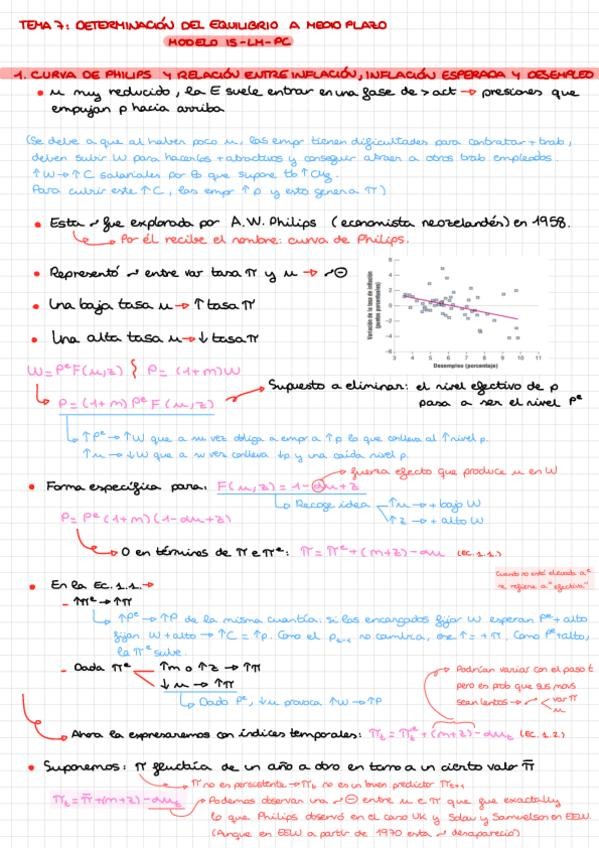 TEMA 7: DETERMINACIÓN DEL EQUILIBRIO A MEDIO PLAZO
MODELO IS-LM-PC
1. CURVA DE PHILIPS Y RELACIÓN ENTRE INFLACIÓN, INFLACIÓN ESPERADA Y DESEMPLEO
• u muy reducido, la E suele entrar en una fase de > act → presiones que
empujan p hacia arriba
(Se debe a que al haber poco u, las empr tienen dificultades para contratar + trab,
deben subir W para hacerlos + atractivos y conseguir atraer a otros trab empleados.
↑W → ↑C salariales por lo que supone tb ↑CMg.
Para cubrir este ↑C, las empr ↑p y esto genera π)
• Esta ~ fue explorada por A.W. Philips (economista neozelandés) en 1958.
Por él recibe el nombre: curva de Philips.
• Representó ~ entre var tasa π y u → ~⊖
• Una baja tasa u → ↑ tasa π
• Una alta tasa u → ↓ tasa π
Variación de la tasa de inflación
(puntos porcentuales)
6
4
2
0
-2
-4
-6
3 4 5 6 7 8 9 10 11
Desempleo (porcentaje)
W = PᵉF(u,z) } P = (1+m)W
P = (1+m) Pᵉ F(u,z)
Supuesto a eliminar: el nivel efectivo de p
pasa a ser el nivel Pᵉ
↑Pᵉ → ↑W que a su vez obliga a empr a ↑p lo que conlleva al ↑nivel p.
↑u → ↓W que a su vez conlleva ↓p y una caída nivel p.
fuerza efecto que produce u en W
• Forma específica para: F(u,z) = 1-αu+z
Recoge idea
↑u → + bajo W
↑z → + alto W
P = Pᵉ(1+m)(1-αu+z)
O en términos de π e πᵉ: π = πᵉ + (m+z) - αu (EC. 1.1.)
Cuando no esté elevada a ᵉ
se refiere a "efectiva"
• En la Ec. 1.1. →
- ↑πᵉ → ↑π
↑Pᵉ → ↑P de la misma cuantía: si los encargados fijar W esperan Pᵉ + alto
fijan W + alto → ↑C = ↑p. Como el pₜ₋₁ no cambia, ese ↑ = + π. Como Pᵉ + alto,
la πᵉ sube.
- Dada πᵉ
↑m o ↑z → ↑π
↓u → ↑π
Dado Pᵉ, ↓u provoca ↑W → ↑P
Podrían variar con el paso t
pero es prob que sus movs
sean lentos →
var π
u
Ahora la expresaremos con índices temporales: πₜ = πₜᵉ + (m+z) - αuₜ (EC. 1.2.)
• Suponemos: π fluctúa de un año a otro en torno a un cierto valor π̄
π no es persistente → πₜ no es un buen predictor πₜ₊₁
πₜ = π̄ + (m+z) - αuₜ
Podemos observar una ~⊖ entre u e π que fue exactly
lo que Philips observó en el caso UK y Solow y Samuelson en EEUU.
(Aunque en EEUU a partir de 1970 esta ~ desapareció)